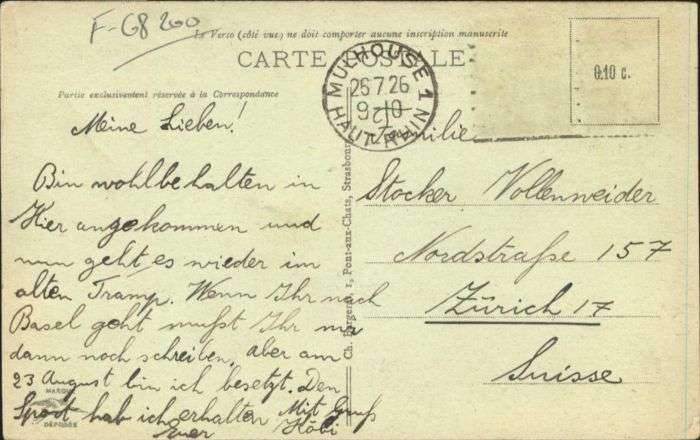 F-68 200
Le Verso (côté vue) ne doit comporter aucune inscription manuscrite
CARTE POSTALE
Partie exclusivement réservée à la Correspondance
0.10 c.
MULHOUSE 1
26 7 26
HAUT-RHIN
Meine Lieben!
Bin wohlbehalten in
Hier angekommen und
nun geht es wieder im
alten Tramp. Wenn Ihr nach
Basel geht mußt Ihr mir
dann noch schreiben, aber am
23 August bin ich besetzt. Den
Sport hab ich erhalten Mit Gruß
Euer Köbi
MARQUE
DÉPOSÉE
Ch. Bergeret, 1, Pont-aux-Chats, Strasbourg
Familie
Stocker Vollenweider
Nordstraße 157
Zürich 17
Suisse